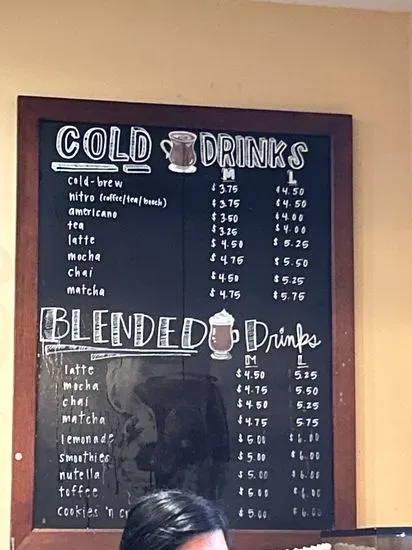 COLD DRINKS
M L
cold-brew $3.75 $4.50
nitro (coffee/tea/hooch) $3.75 $4.50
americano $3.50 $4.00
tea $3.25 $4.00
latte $4.50 $5.25
mocha $4.75 $5.50
chai $4.50 $5.25
matcha $4.75 $5.75
BLENDED Drinks
M L
latte $4.50 5.25
mocha $4.75 5.50
chai $4.50 5.25
matcha $4.75 5.75
lemonade $5.00 $6.00
smoothies $5.00 $6.00
nutella $5.00 $6.00
toffee $5.00 $6.00
cookies 'n $5.00 $6.00